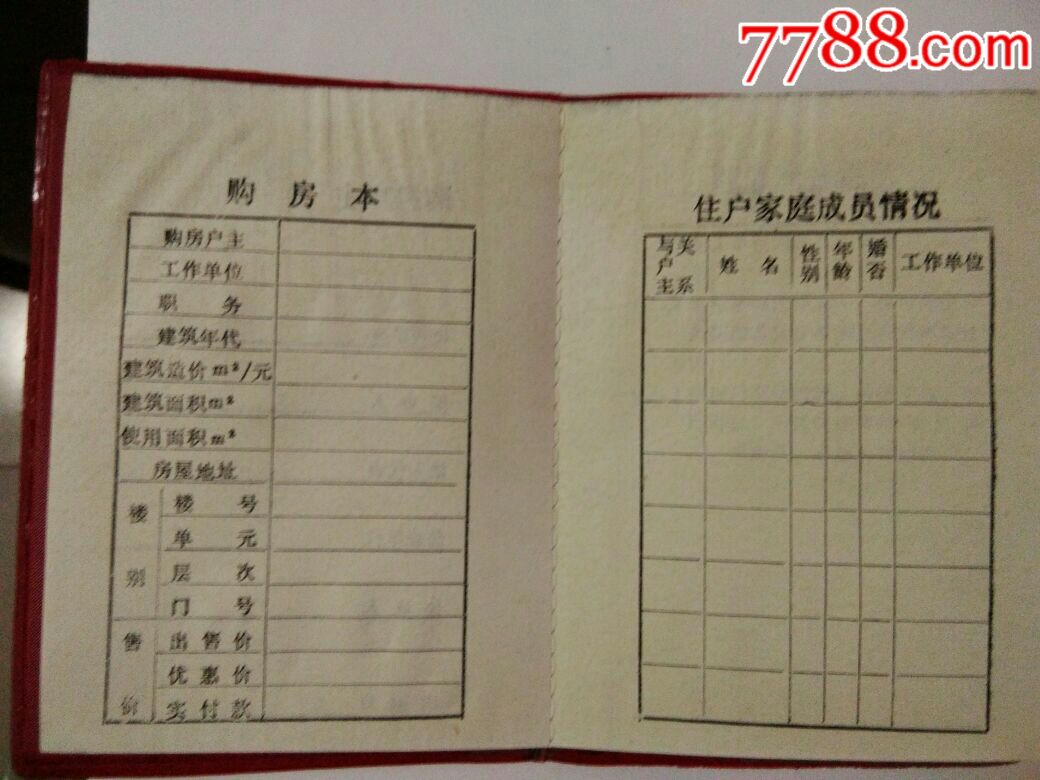 7788.com
购房本
购房户主
工作单位
职务
建筑年代
建筑造价m²/元
建筑面积m²
使用面积m²
房屋地址
楼别
楼号
单元
层次
门号
售价
出售价
优惠价
实付款
住户家庭成员情况
与户主关系 姓名 性别 年龄 婚否 工作单位